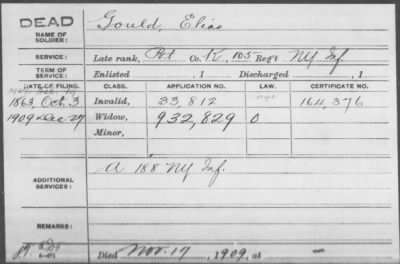 DEAD
NAME OF SOLDIER:
Gould, Elias
SERVICE:
Late rank, Pvt Co. K, 105 Reg't NY Inf.
TERM OF SERVICE:
Enlisted , 1 Discharged , 1
DATE OF FILING. CLASS. APPLICATION NO. LAW. CERTIFICATE NO.
1863 Oct. 3 Invalid, 33,812 164,376
1909 Dec. 27 Widow, 932,829 O
Minor,
ADDITIONAL SERVICES:
A 188 NY Inf.
REMARKS:
Died Nov. 17, 1909, at –